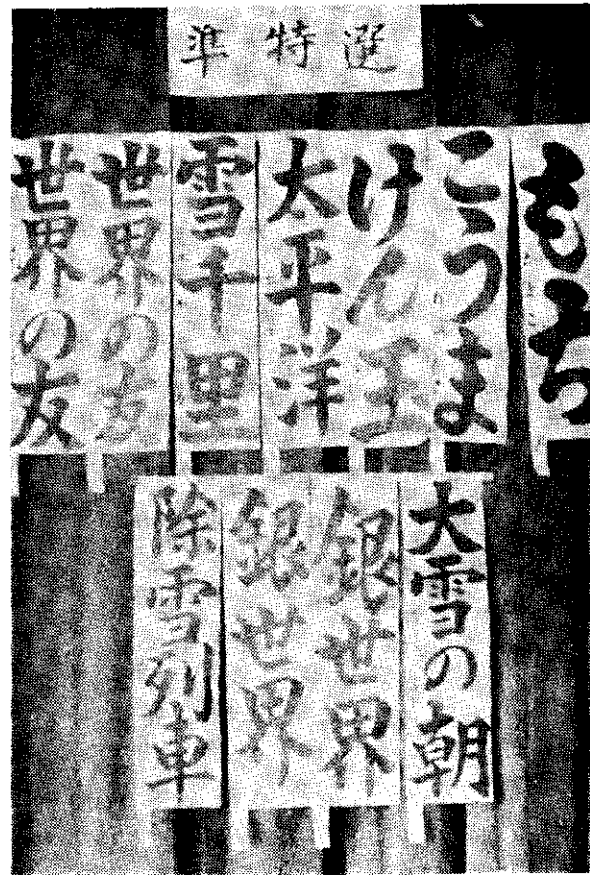 準特選
もち
こうま
けん玉
太平洋
雪千里
世界の友
世界の友
大雪の朝
銀世界
銀世界
除雪列車